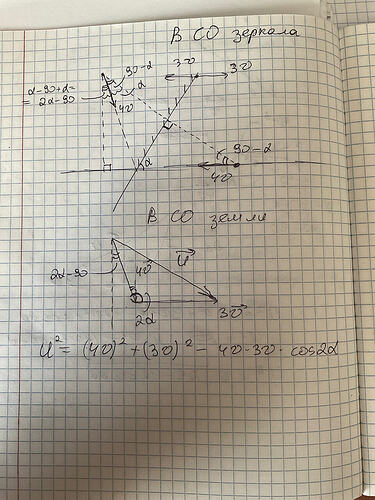 В СО зеркала
90-α
3v
3v
α-90+α=
= 2α-90
α
4v
α
90-α
4v
В СО земли
2α-90
4v
U
2α
3v
U² = (4v)² + (3v)² - 4v·3v·cos2α